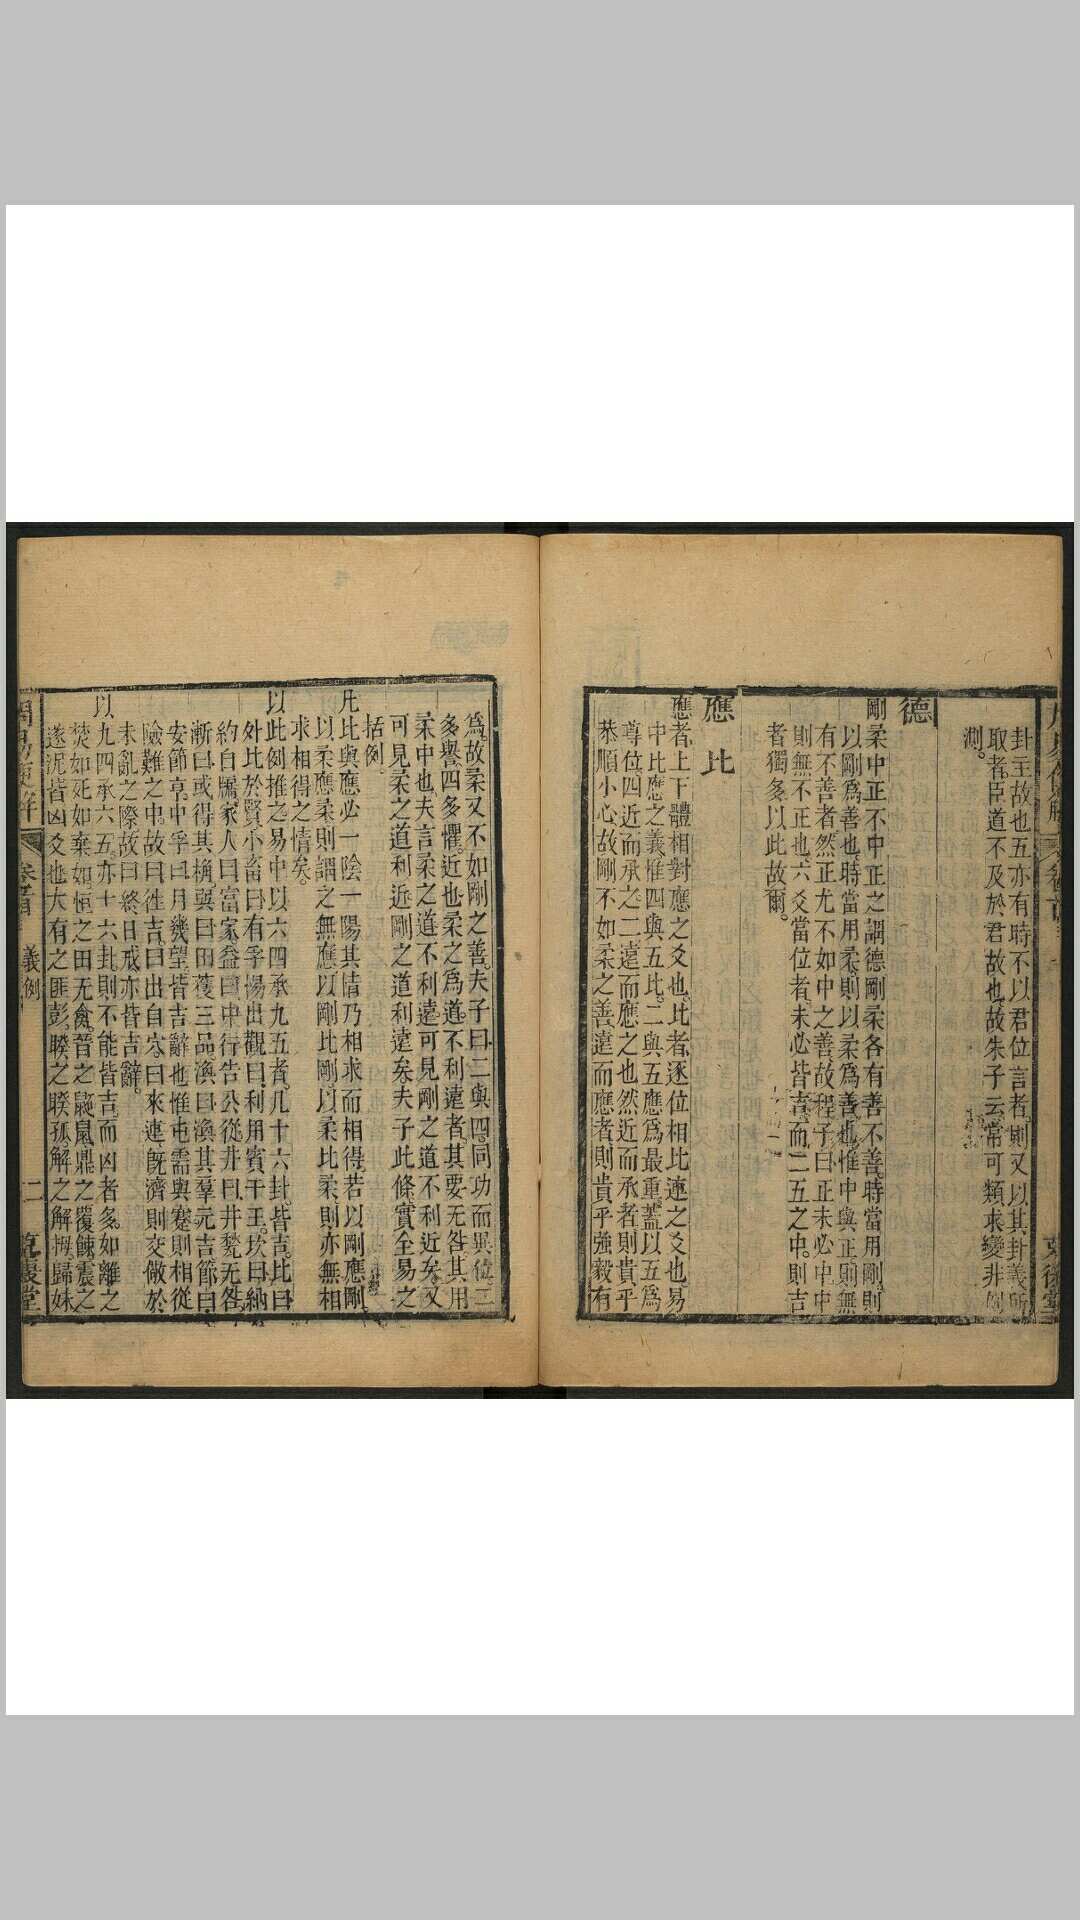 卦主故也五亦有時不以君位言者則又以其卦義所
取者臣道不及於君故也故朱子云常可類求變非例
測
德
剛柔中正不中正之謂德剛柔各有善不善時當用剛則
以剛為善也時當用柔則以柔為善也惟中與正則無
有不善者然正尤不如中之善故程子曰正未必中中
則無不正也六爻當位者未必皆吉而二五之中則吉
者獨多以此故爾
應 比
應者上下體相對應之爻也比者逐位相比連之爻也易
中比應之義惟四與五比二與五應為最重蓋以五為
尊位四近而承之二遠而應之也然近而承者則貴乎
恭順小心故剛不如柔之善遠而應者則貴乎強毅有
為故柔又不如剛之善夫子曰二與四同功而異位二
多譽四多懼近也柔之為道不利遠者其要无咎其用
柔中也夫言柔之道不利遠可見剛之道不利近矣又
可見柔之道利近剛之道利遠矣夫子此條實全易之
括例
凡比與應必一陰一陽其情乃相求而相得若以剛應剛
以柔應柔則謂之無應以剛比剛以柔比柔則亦無相
求相得之情矣
以此例推之易中以六四承九五者凡十六卦皆吉比曰
外比於賢小畜曰有孚惕出觀曰利用賓于王坎曰納
約自牖家人曰富家益曰中行告公從井曰井甃无咎
漸曰或得其桷巽曰田獲三品渙曰渙其羣元吉節曰
安節亨中孚曰月幾望皆吉辭也惟屯需與蹇則相從
險難之中故曰往吉曰出自穴曰來連既濟則交儆於
未亂之際故曰終日戒亦皆吉辭
以九四承六五亦十六卦則不能皆吉而凶者多如離之
焚如死如棄如恒之田无禽晉之鼫鼠鼎之覆餗震之
遂泥皆凶爻也大有之匪彭睽之睽孤解之解拇歸妹
卷首 義例 二